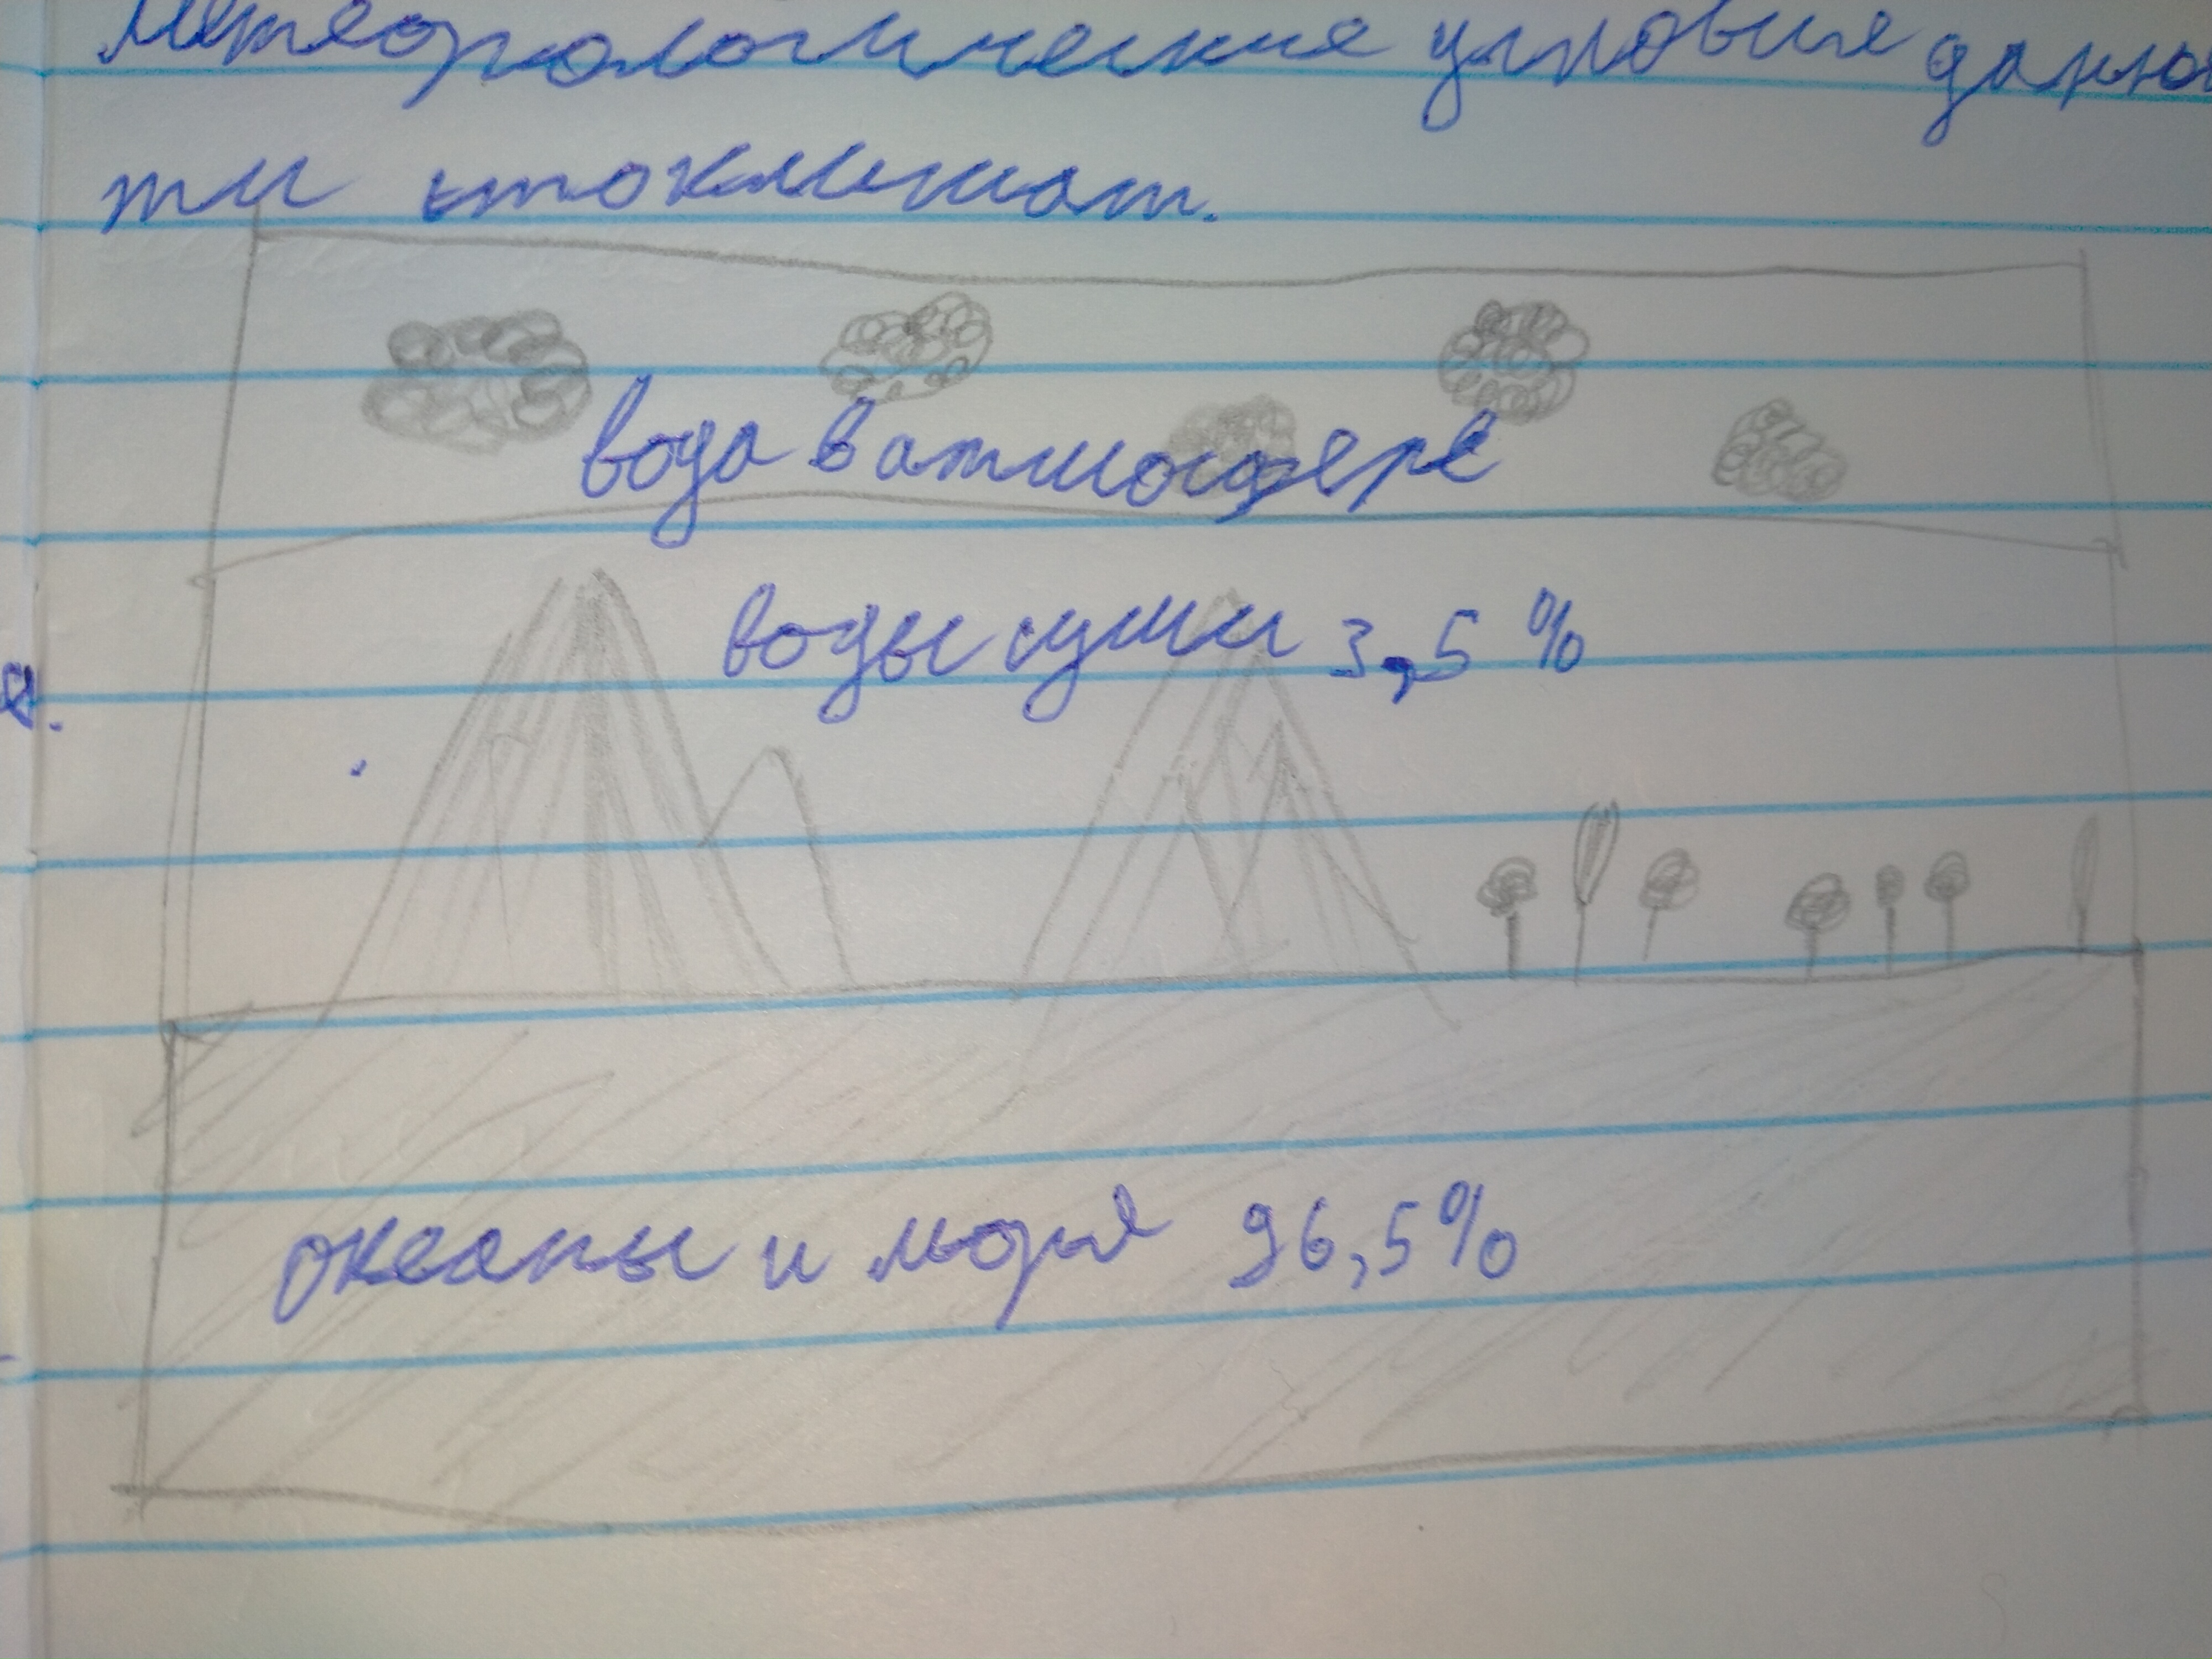 Метеорологические условия данно
ти этоклимат.
вода в атмосфере
воды суши 3,5 %
я.
океаны и моря 96,5%